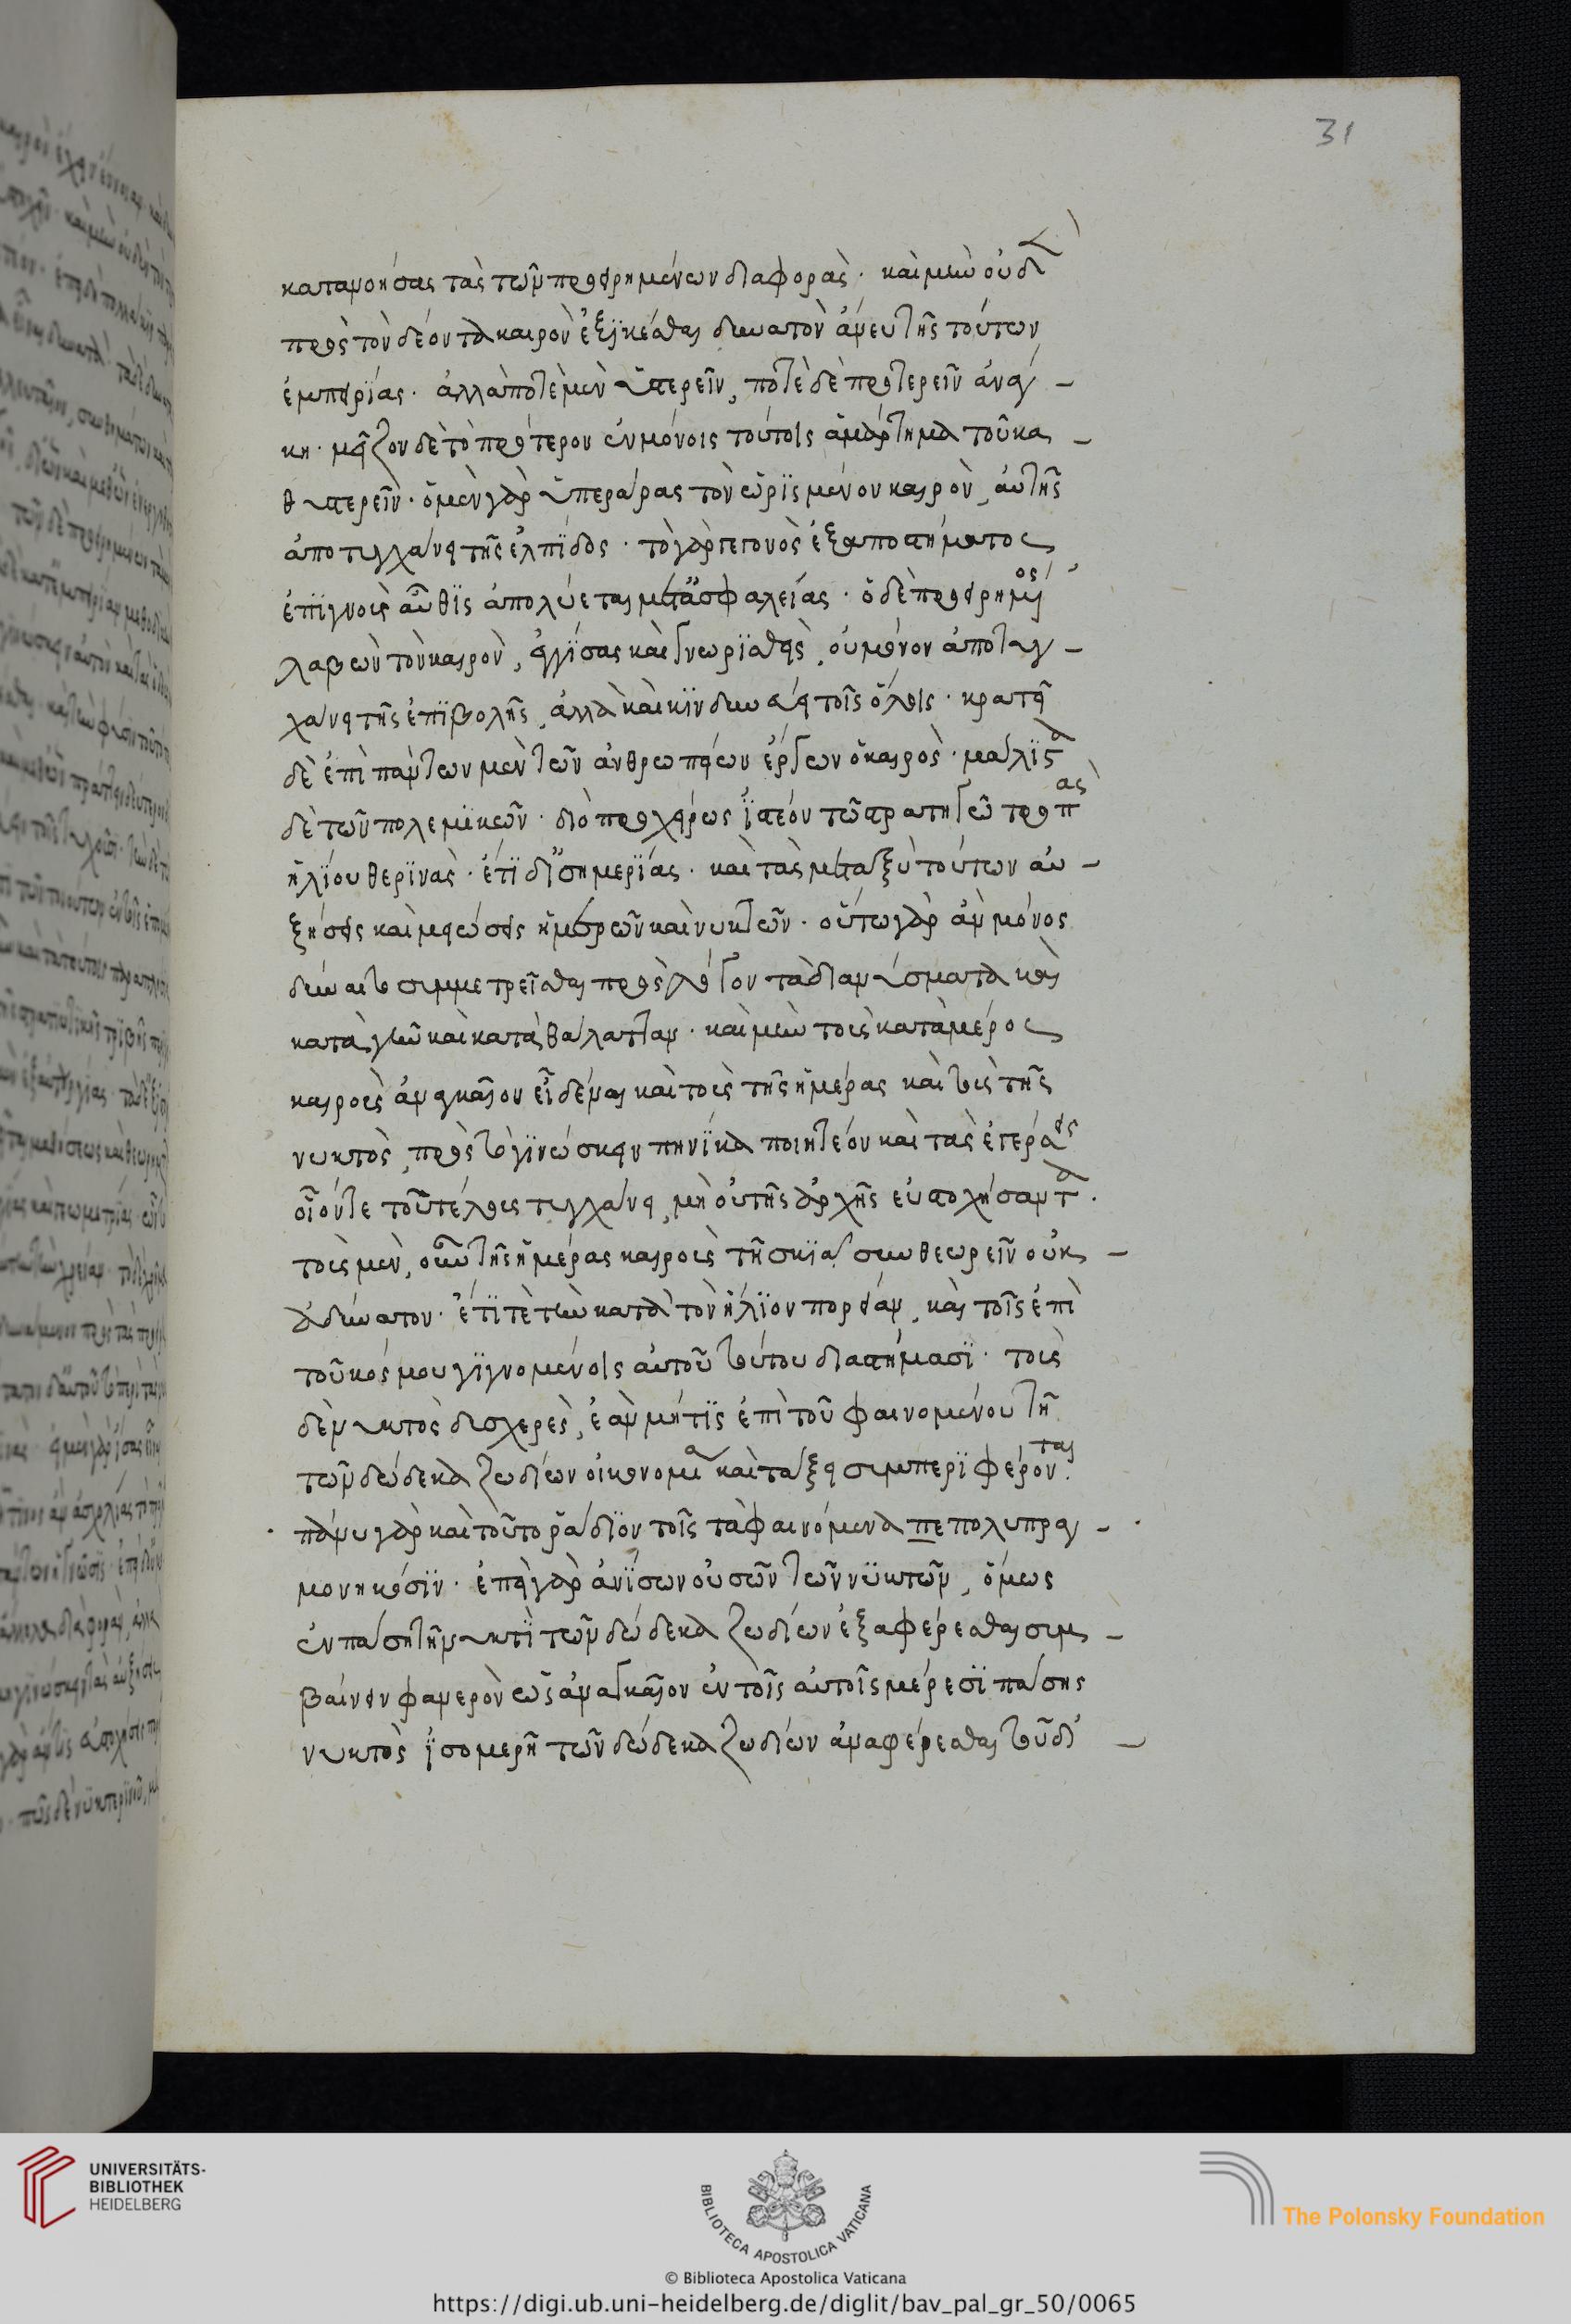 31
κατανοήσας τὰς τῶν προειρημένων διαφοράς · καὶ μὴν οὐδὲ
πρὸς τὸν δέοντα καιρὸν ἐξικέσθαι δυνατὸν ἄνευ τῆς τούτων
ἐμπειρίας · ἀλλὰ ποτὲ μὲν ὑστερεῖν, ποτὲ δὲ προτερεῖν ἀνάγ-
κη · μεῖζον δὲ τὸ πρότερον ἐν μόνοις τούτοις ἁμάρτημα τοῦ κα-
θυστερεῖν · ὁ μὲν γὰρ ὑπεράρας τὸν ὡρισμένον καιρὸν, αὐτῆς
ἀποτυγχάνει τῆς ἐλπίδος · τὸ γὰρ γεγονὸς ἐξ ἀποστήματος
ἐπιγνοὺς αὖθις ἀπολύεται μετὰ ἀσφαλείας · ὁ δὲ προειρημένος
λαβὼν τὸν καιρὸν, ἐγγίσας καὶ γνωρισθεὶς, οὐ μόνον ἀποτυγ-
χάνει τῆς ἐπιβολῆς, ἀλλὰ καὶ κινδυνεύει τοῖς ὅλοις · κρατεῖ
δὲ ἐπὶ πάντων μὲν τῶν ἀνθρωπείων ἔργων ὁ καιρὸς · μάλιστα
δὲ τῶν πολεμικῶν · διὸ προχείρως ἰστέον τῷ στρατηγῷ τροπὰς
ἡλίου θερινὰς · ἔτι δ' ἰσημερίας · καὶ τὰς μεταξὺ τούτων αὐ-
ξήσεις καὶ μειώσεις ἡμερῶν καὶ νυκτῶν · οὕτω γὰρ ἂν μόνος
δύναιτο συμμετρεῖσθαι πρὸς λόγον τὰ διανύσματα καὶ
κατὰ γῆν καὶ κατὰ θάλατταν · καὶ μὴν τοὺς κατὰ μέρος
καιροὺς ἀναγκαῖον εἰδέναι καὶ τοὺς τῆς ἡμέρας καὶ τοὺς τῆς
νυκτὸς, πρὸς τὸ γινώσκειν πηνίκα ποιητέον καὶ τὰς ἐγέρσεις
οἷόν τε τοῦ τέλους τυγχάνει, μὴ οὐ τῆς ἀρχῆς εὐστοχήσαντα.
τοὺς μὲν, οὖν τῆς ἡμέρας καιροὺς τῇ σκιᾷ συνθεωρεῖν οὐκ
ἀδύνατον · ἔτι τὲ τὴν κατὰ τὸν ἥλιον πορείαν, καὶ τοῖς ἐπὶ
τοῦ κόσμου γιγνομένοις αὐτοῦ τούτου διαστήμασι · τοὺς
δὲ νυκτὸς δυσχερὲς, ἐὰν μή τις ἐπὶ τοῦ φαινομένου τῇ
τῶν δώδεκα ζωδίων οἰκονομίᾳ καὶ τάξει συμπεριφέρονται
πάνυ γὰρ καὶ τοῦτο ῥᾴδιον τοῖς τὰ φαινόμενα πεπολυπραγ-
μονηκόσιν · ἐπεὶ γὰρ ἀνίσων οὐσῶν τῶν νυκτῶν, ὅμως
ἐν πάσῃ τῇ νυκτὶ τῶν δώδεκα ζωδίων ἓξ ἀφέρεσθαι συμ-
βαίνειν φανερὸν ὡς ἀναγκαῖον ἐν τοῖς αὐτοῖς μέρεσι πάσης
νυκτὸς ἰσομερῆ τῶν δώδεκα ζωδίων ἀναφέρεσθαι τοῦ δὲ
UNIVERSITÄTS-
BIBLIOTHEK
HEIDELBERG
BIBLIOTECA APOSTOLICA VATICANA
The Polonsky Foundation
© Biblioteca Apostolica Vaticana
https://digi.ub.uni-heidelberg.de/diglit/bav_pal_gr_50/0065